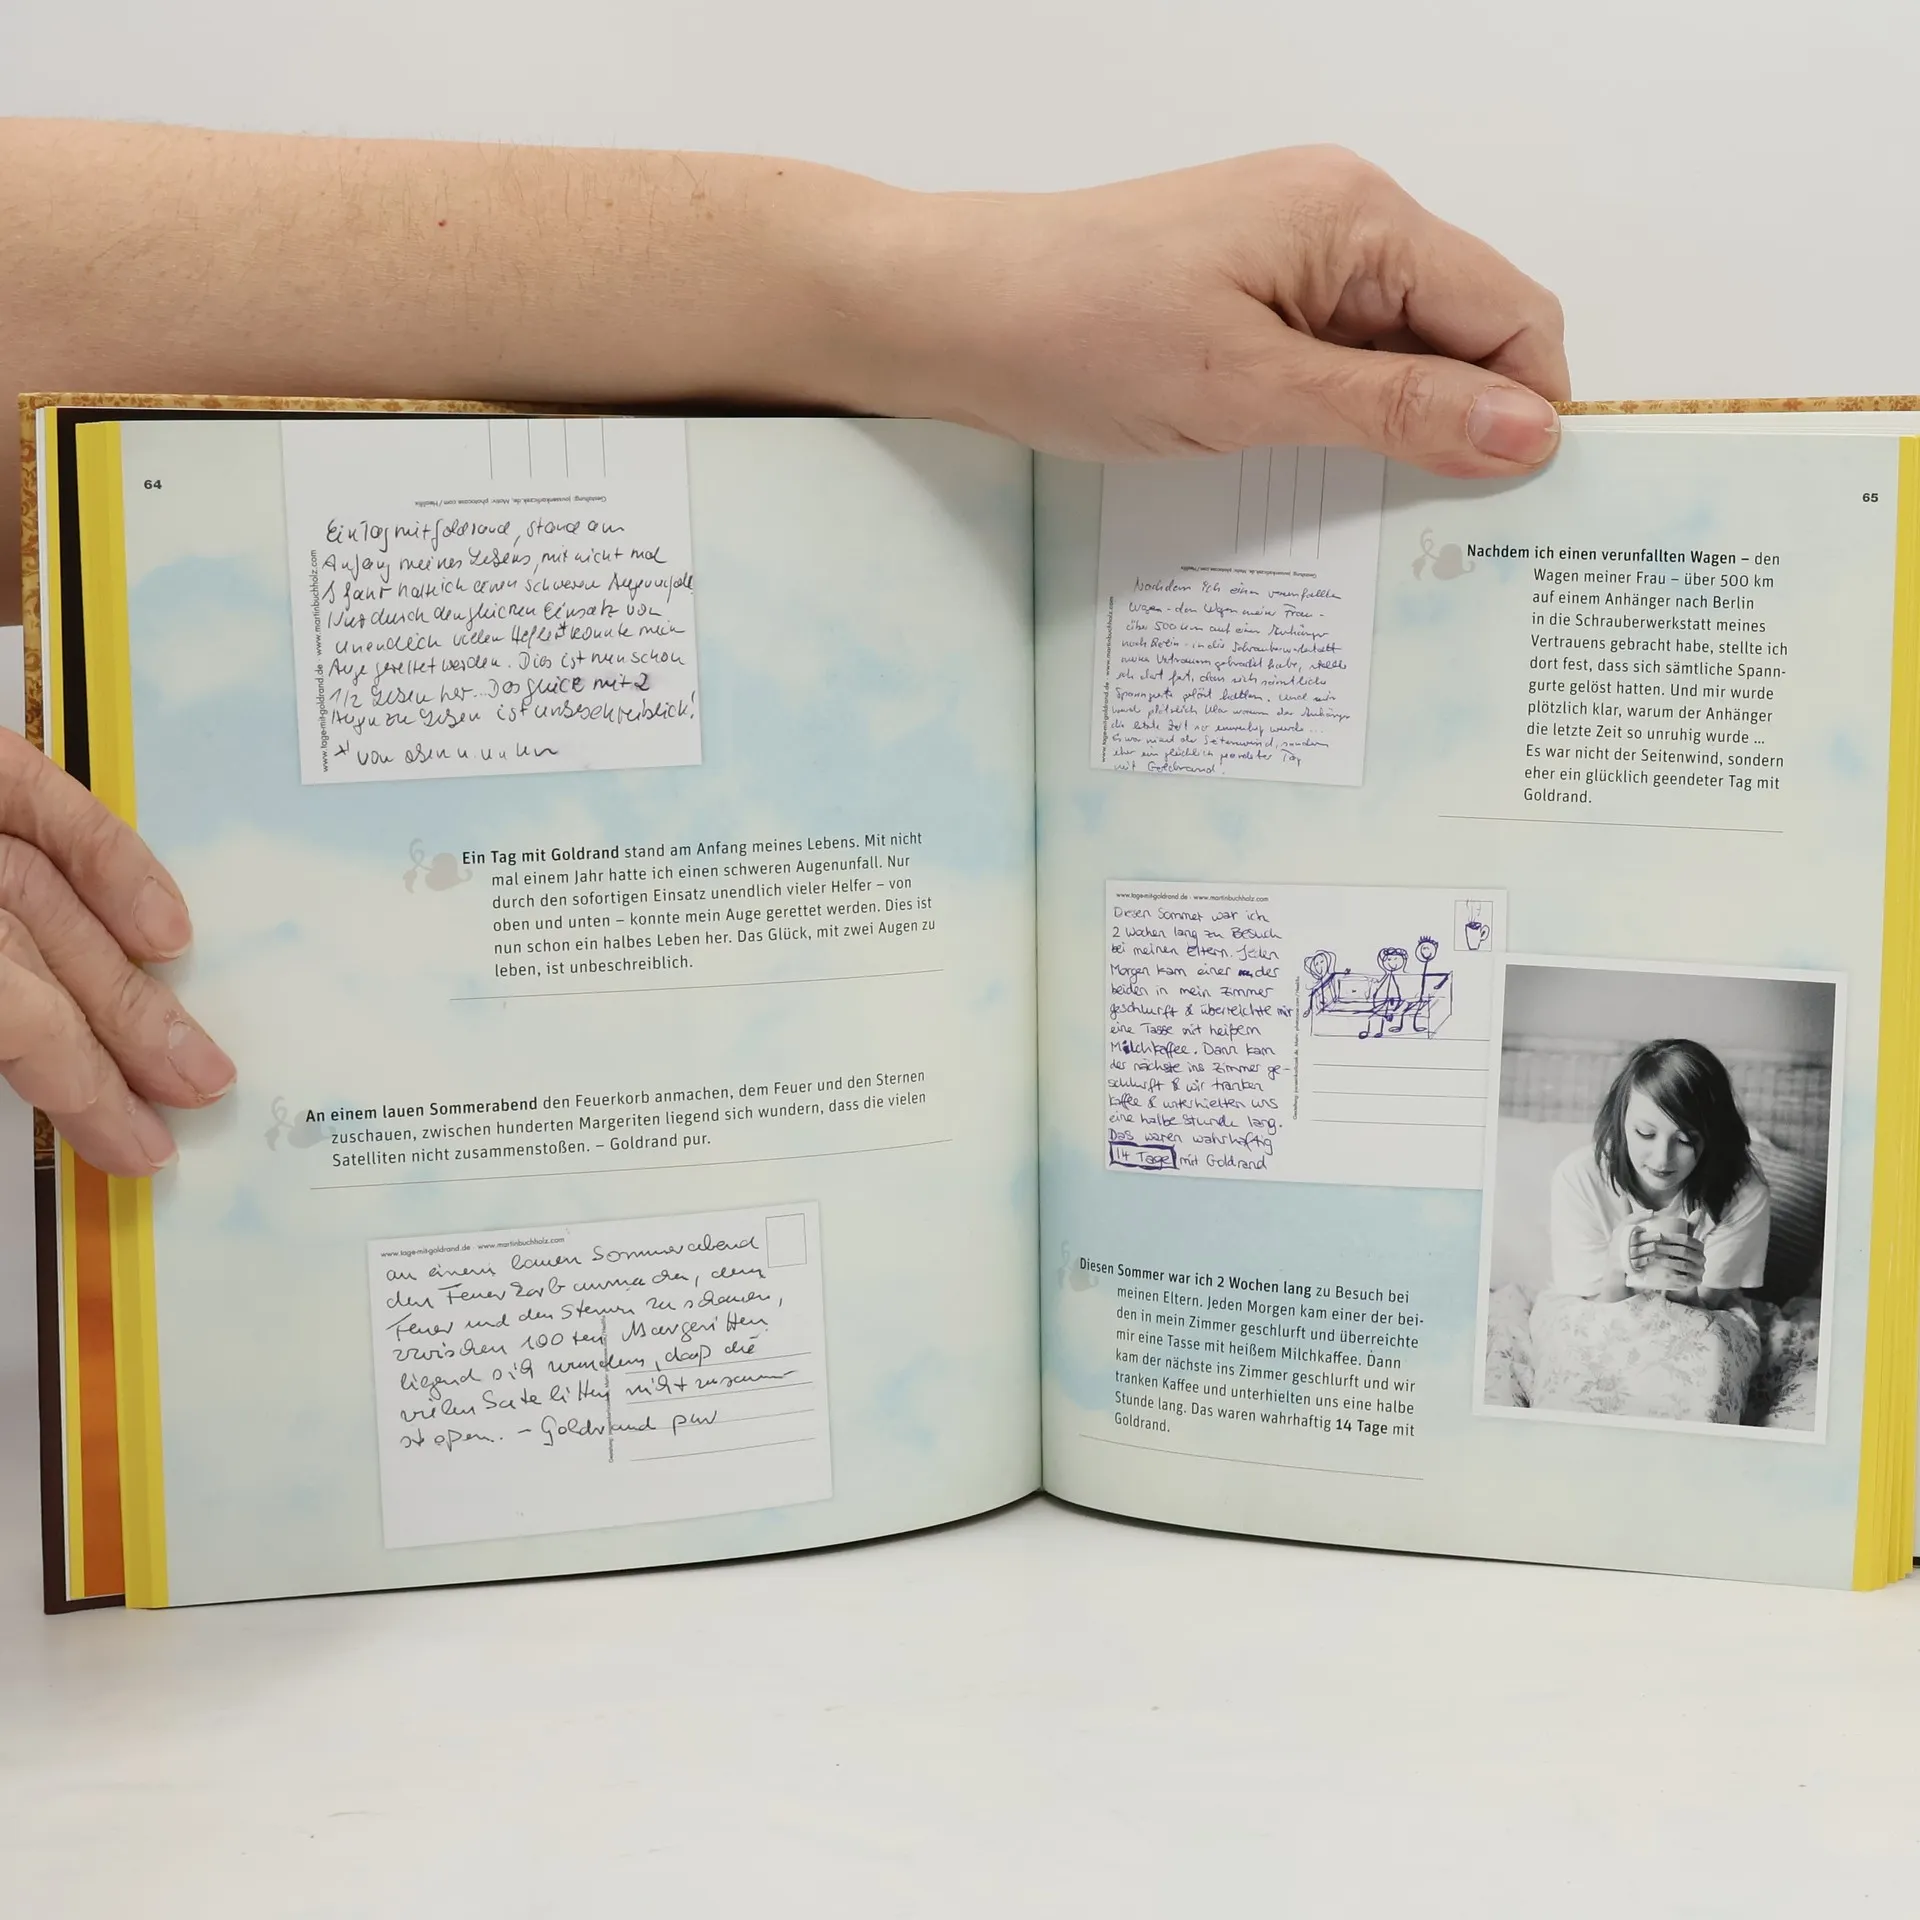 64
Gestaltung: joussenkarliczek.de, Motiv: photocase.com / Hasilfix
www.tage-mit-goldrand.de · www.martinbuchholz.com
Ein Tag mit Goldrand, stand am
Anfang meines Lebens, mit nicht mal
1 Jahr hatte ich einen schweren Augenunfall.
Nur durch den Einsatz von
unendlich vielen Helfer* konnte mein
Auge gerettet werden. Dies ist nun schon
1/2 Leben her... Das Glück mit 2
Augen zu Leben ist unbeschreiblich!
* von oben u. unten
Ein Tag mit Goldrand stand am Anfang meines Lebens. Mit nicht
mal einem Jahr hatte ich einen schweren Augenunfall. Nur
durch den sofortigen Einsatz unendlich vieler Helfer – von
oben und unten – konnte mein Auge gerettet werden. Dies ist
nun schon ein halbes Leben her. Das Glück, mit zwei Augen zu
leben, ist unbeschreiblich.
An einem lauen Sommerabend den Feuerkorb anmachen, dem Feuer und den Sternen
zuschauen, zwischen hunderten Margeriten liegend sich wundern, dass die vielen
Satelliten nicht zusammenstoßen. – Goldrand pur.
www.tage-mit-goldrand.de · www.martinbuchholz.com
an einem lauen Sommerabend
den Feuerkorb anmachen, dem
Feuer und den Sternen zuschauen,
zwischen 100ten Margeriten
liegend sich wundern, daß die
vielen Satelitten nicht zusamm-
stoßen. – Goldrand pur
65
www.tage-mit-goldrand.de · www.martinbuchholz.com
Nachdem ich einen verunfallten
Wagen – den Wagen meiner Frau –
über 500 km auf einem Anhänger
nach Berlin in die Schrauberwerkstatt
meines Vertrauens gebracht habe, stellte
ich dort fest, dass sich sämtliche
Spanngurte gelöst hatten. Und mir
wurd plötzlich klar warum der Anhänger
die letzte Zeit so unruhig wurde ...
Es war nicht der Seitenwind, sondern
eher ein glücklich geendeter Tag
mit Goldrand.
Nachdem ich einen verunfallten Wagen – den
Wagen meiner Frau – über 500 km
auf einem Anhänger nach Berlin
in die Schrauberwerkstatt meines
Vertrauens gebracht habe, stellte ich
dort fest, dass sich sämtliche Spann-
gurte gelöst hatten. Und mir wurde
plötzlich klar, warum der Anhänger
die letzte Zeit so unruhig wurde ...
Es war nicht der Seitenwind, sondern
eher ein glücklich geendeter Tag mit
Goldrand.
www.tage-mit-goldrand.de · www.martinbuchholz.com
Diesen Sommer war ich
2 Wochen lang zu Besuch
bei meinen Eltern. Jeden
Morgen kam einer der
beiden in mein Zimmer
geschlurft & überreichte mir
eine Tasse mit heißem
Milchkaffee. Dann kam
der nächste ins Zimmer ge-
schlurft & wir tranken
Kaffee & unterhielten uns
eine halbe Stunde lang.
Das waren wahrhaftig
14 Tage mit Goldrand
Diesen Sommer war ich 2 Wochen lang zu Besuch bei
meinen Eltern. Jeden Morgen kam einer der bei-
den in mein Zimmer geschlurft und überreichte
mir eine Tasse mit heißem Milchkaffee. Dann
kam der nächste ins Zimmer geschlurft und wir
tranken Kaffee und unterhielten uns eine halbe
Stunde lang. Das waren wahrhaftig 14 Tage mit
Goldrand.